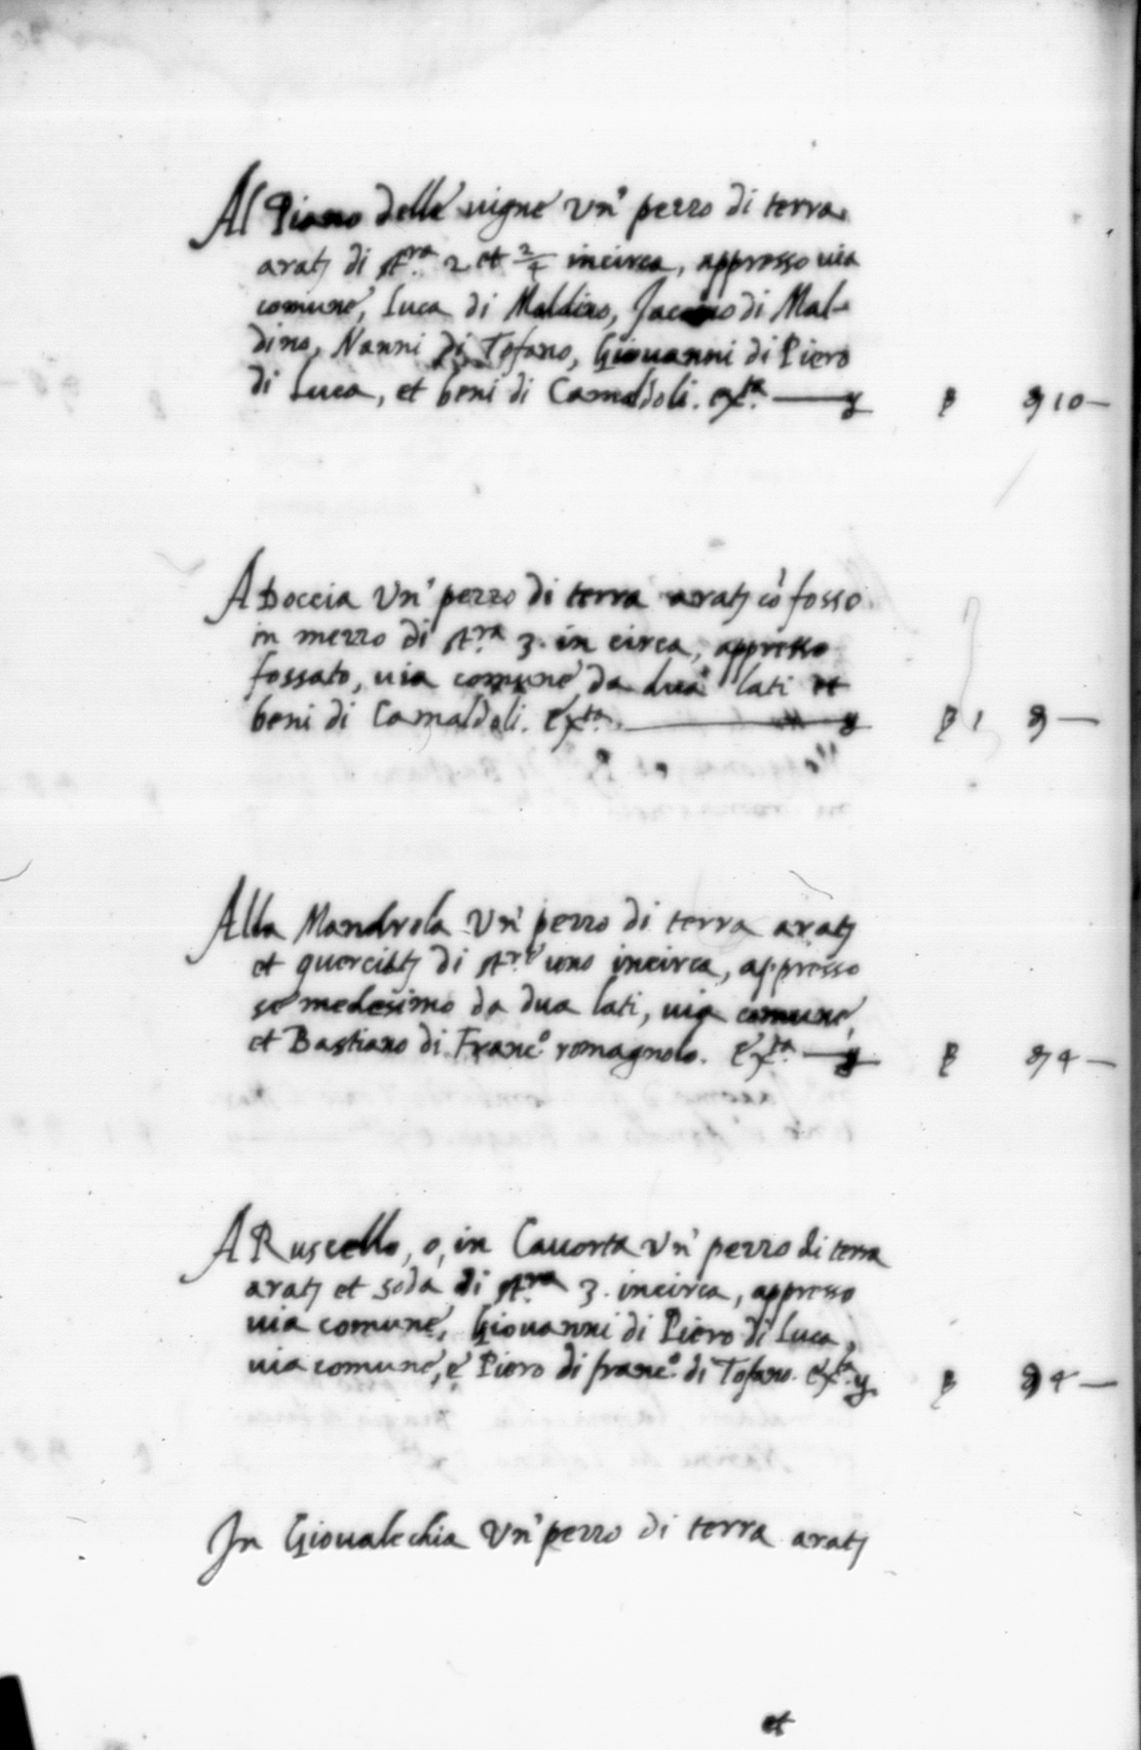 Al Piano delle uigne un' pezzo di terra
arat; di st.ra 2 et 2/4 incirca, appresso uia
comune, Luca di Maldino, Jacomo di Mal-
dino, Nanni di Tofano, Giouanni di Piero
di Luca, et beni di Camaldoli. exta. y ß 10 —
A Doccia Un' pezzo di terra arat; cō fosso
in mezzo di st.ra 3. in circa, appresso
fossato, uia comune da dua lati et
beni di Camaldoli. Exta. y ß 1 —
Alla Mandrola Un' pezzo di terra arat;
et quercit; di st.re uno incirca, appresso
se medesimo da dua lati, uia comune,
et Bastiano di Franc.o romagnolo. Exta. y ß 4 —
A Ruscello, o, in Cauorta Un' pezzo di terra
arat; et soda di st.ra 3. incirca, appresso
uia comune, Giouanni di Piero di Luca,
uia comune, e Piero di franc.o di Tofano. Exta. y ß 4 —
In Gioualecchia Un' pezzo di terra arat;
et